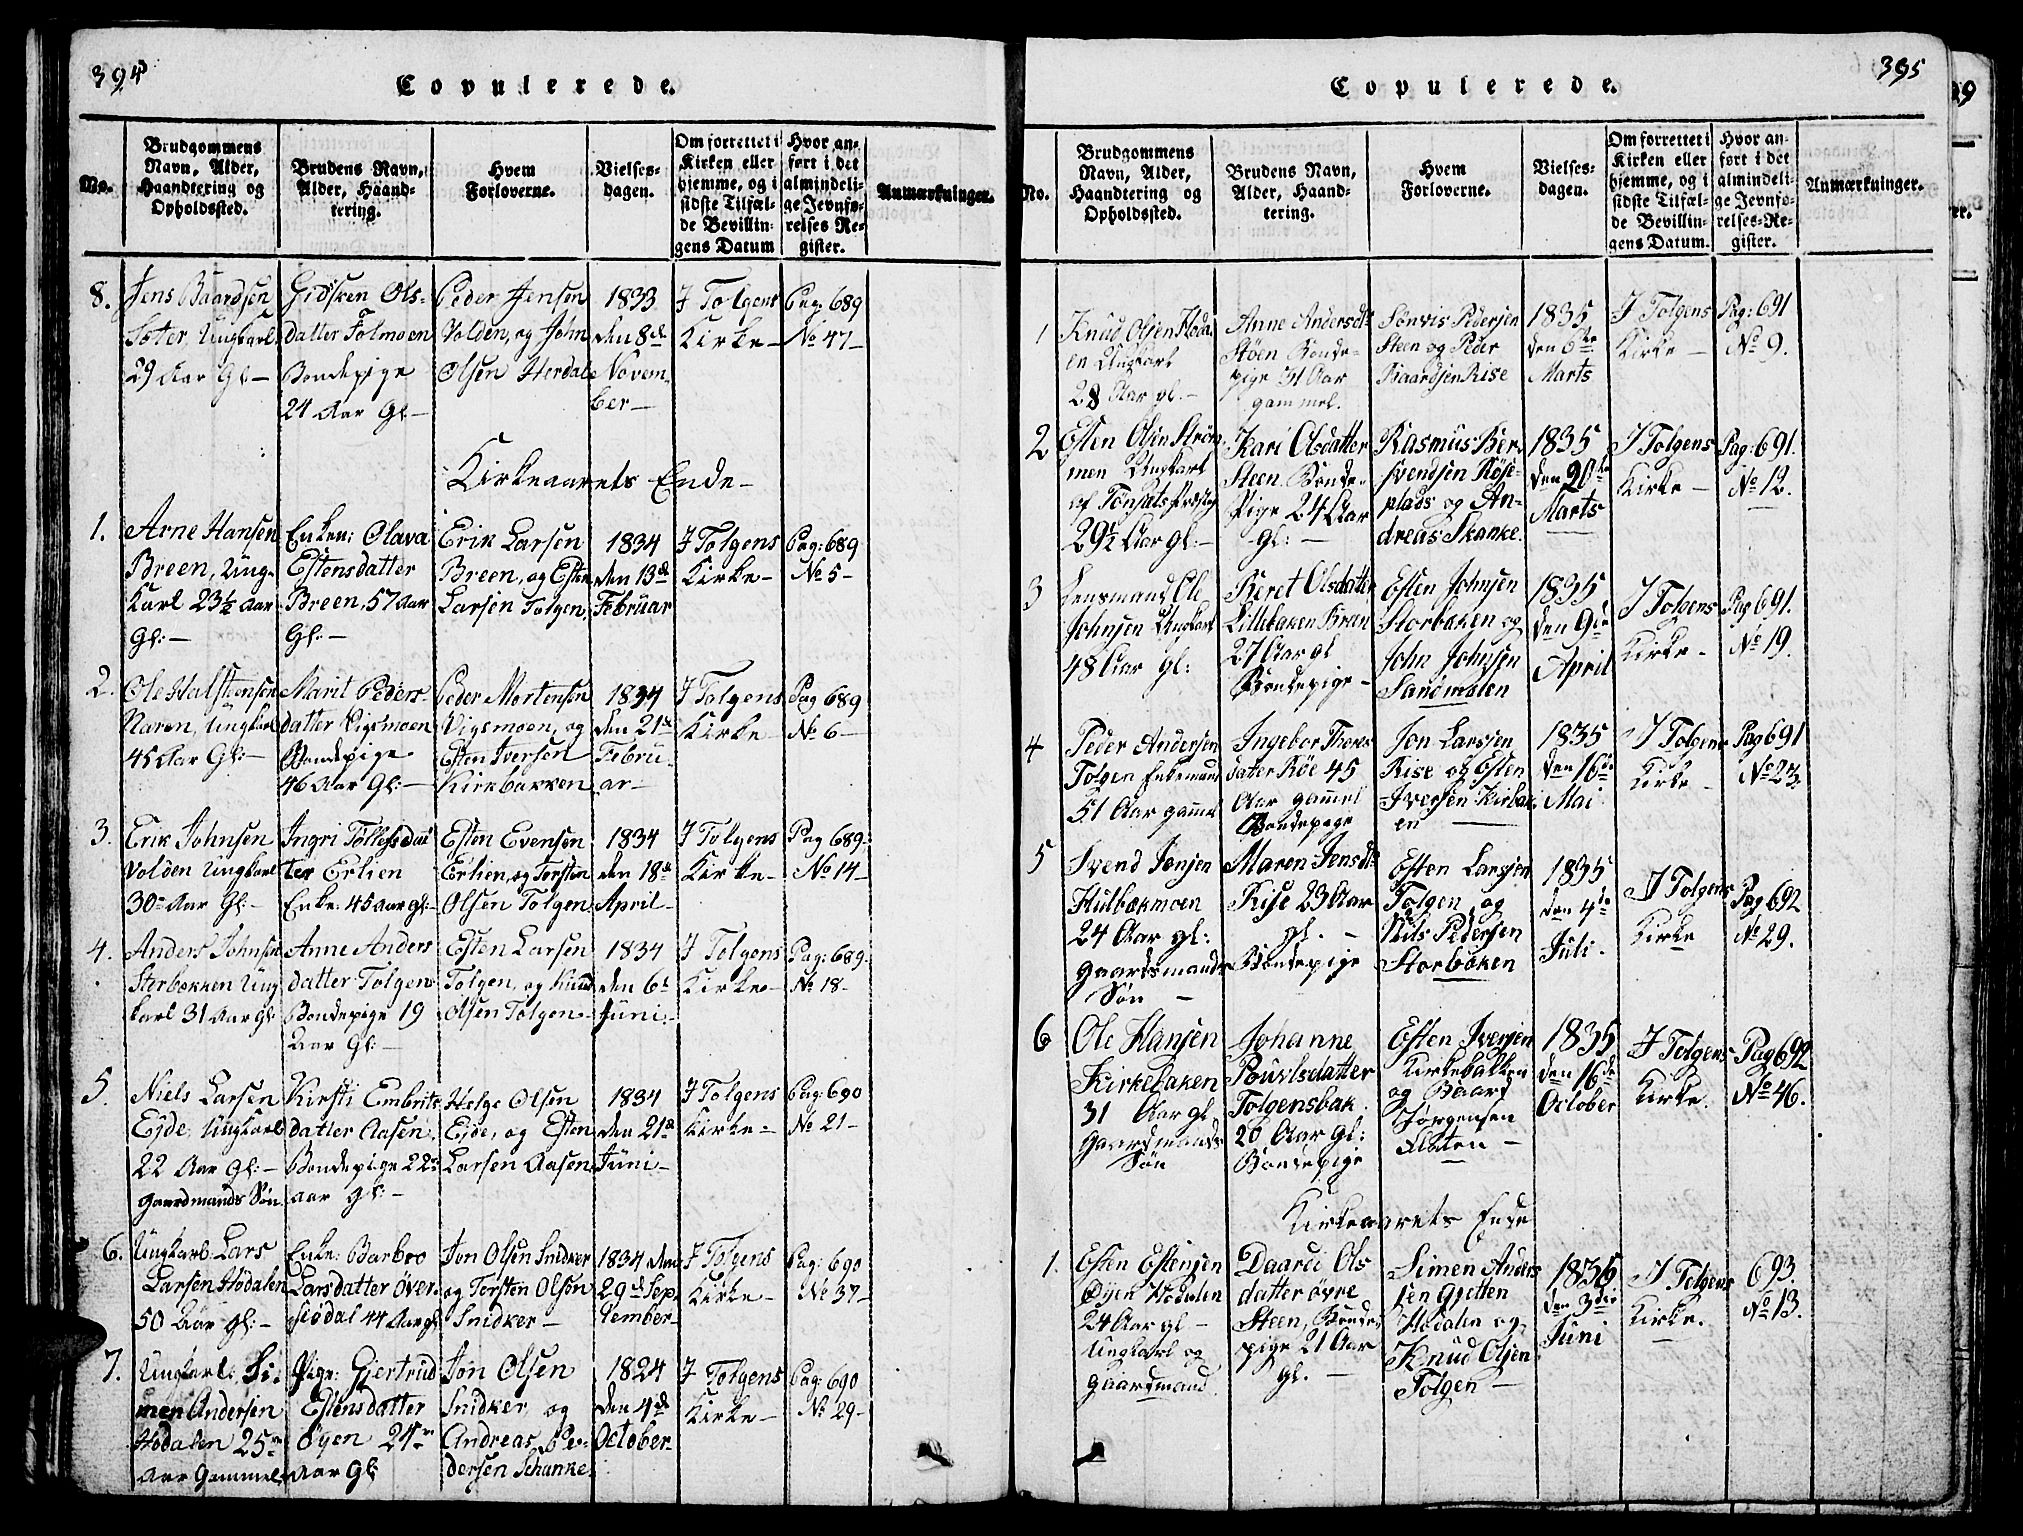 394
Copulerede.
No.
Brudgommens
Navn, Alder,
Haandtering og
Opholdssted.
Brudens Navn,
Alder, Haand-
tering.
Hvem
Forloverne.
Vielses-
dagen.
Om forrettet i
Kirken eller
hjemme, og i
sidste Tilfæl-
de Bevillin-
gens Datum
Hvor an-
ført i det
almindeli-
ge Jevnfø-
relses-Re-
gister.
Anmærkninger.
8.
Jens Baardsen
Ungkarl
29 Aar Gl:-
Gidsken Ols-
datter Tolmoen
Bondepige
24 Aar Gl:-
Peder Jensen
Volden, og John
Olsen Herdale
1833
den 8de
Novem-
ber-
I Tolgens
Kirke-
Pag: 689
No 47-
Kirkeaarets Ende-
1.
Arne Hansen
Breen, Ung-
Karl 23½ Aar
Gl:-
Enken: Olava
Estensdatter
Breen, 57 Aar
Gl:-
Erik Larsen
Breen, og Esten
Larsen Tolgen
1834
den 13de
Februar
I Tolgens
Kirke-
Pag: 689
No 5-
2.
Ole Halstensen
Ungkarl
45 Aar Gl:-
Marit Peders-
datter Vigsmoen
Bondepige
46 Aar Gl:-
Peder Mortensen
Vigsmoen, og
Esten Iversen
Kirkbakken
1834
den 21de
Febru-
ar-
I Tolgens
Kirke
Pag 689
No 6-
3.
Erik Johnsen
Volden Ungkarl
30- Aar Gl:-
Ingri Tollefsdat
ter Erlien
Enke: 45 Aar gl:-
Esten Evensen
Erlien, og Torsten
Olsen Tolgen
1834
den 18de
April-
I Tolgens
Kirke-
Pag 689:
No 14-
4.
Anders Johnsen
Storbekken Ung
karl 31 Aar Gl:
Anne Anders
datter Tolgen
Bondepige 19
Aar Gl:-
Esten Larsen
Tolgen, og Knud
Olsen Tolgen-
1834
den 6te
Juni:-
I Tolgens
Kirke-
Pag: 689.
No 18-
5.
Niels Larsen
Eide, Ungkarl
22 Aar Gl:-
Gaardmands Søn
Kirsti Embrits
datter Aasen
Bondepige 22
Aar gl:-
Helge Olsen
Eide, og Esten
Larsen Aasen
1834
den 21de
Juni-
I Tolgens
Kirke-
Pag: 690
No 21-
6.
Ungkarl: Lars
Larsen Hodalen
50 Aar gl:-
Enke: Barbro
Larsdatter Øver-
44 Aar gl
Jon Olsen Snidker
og Torsten Olsen
Snidker-
1834 den
29de Sep-
tember-
I Tolgens
Kirke-
Pag: 690
No 37-
7.
Ungkarl: Si-
men Andersen
Hodalen 25
Aar Gammel
Pige: Gjertrud
Estensdatter
Øyen 24
Aar Gl:
Jon Olsen
Snidker, og
Andreas Pe-
dersen Schanke.
1824
den 4de
October-
I Tolgens
Kirke-
Pag: 690
No 29-
395
Copulerede.
No.
Brudgommens
Navn, Alder,
Haandtering og
Opholdssted.
Brudens Navn,
Alder, Haand-
tering.
Hvem
Forloverne.
Vielses-
dagen.
Om forrettet i
Kirken eller
hjemme, og i
sidste Tilfæl-
de Bevillin-
gens Datum.
Hvor an-
ført i det
almindeli-
ge Jevnfø-
relses-Re-
gister.
Anmærkninger.
1
Knud Olsen Hoda
en Ungkarl
28 Aar gl.-
Anne Andersdt
Støen Bonde-
pige 31 Aar
gammel.
Sønvis Pedersen
Steen og Peder
Baardsen Rise
1835
den 6te
Marts
I Tolgens
Kirke-
Pag: 691
No 9.
2
Esten Olsen Strøm
men Ungkarl
af Tønsets Præsteg
29½ Aar gl:-
Kari Olsdatter
Steen Bonde-
Pige 24 Aar
gl:-
Rasmus Ber-
svendsen Røse-
plads og An-
dreas Skanke
1835
den 20de
Marts
I Tolgens
Kirke-
Pag: 691.
No 12.
3
Lensmand Ole
Johnsen Ungkarl
48 Aar gl:
Beret Olsdatter
Lillebaken Breen
27 Aar gl
Bondepige-
Esten Johnsen
Storbaken og
John Johnsen
Sandmolen
1835
den 9de
April
I Tolgens
Kirke-
Pag 691.
No 19.
4
Peder Andersen
Tolgen Enkemand
51 Aar gammel
Ingebor Thores
datter Røe 45
Aar gammel
Bondepige
Jon Larssen
Rise og Esten
Iversen Kirbak
en
1835
den 16de
Mai
I Tolgens
Kirke-
Pag 691
No 23.
5
Svend Jensen
Hulbækmoen
24 Aar gl:
Gaardsmands
Søn-
Maren Jensdt
Rise 23 Aar
gl.-
Bondepige
Esten Larssen
Tolgen og
Nils Pedersen
Storboken
1835
den 4de
Juli-
I Tolgens
Kirke
Pag 692
No 29.
6
Ole Hansen
Kirkebaken
31 Aar gl
Gaardmands
Søn
Johanne
Pouvlsdatter
Tolgensbak
26 Aar gl:
Bondepige
Esten Iversen
Kirkebakken
og Baard
Jørgensen
1835
den 16de
October
I Tolgens
Kirke.
Pag 692
No 46.
Kirkeaarets Ende
1.
Esten Estensen
Øyen Hodalen
24 Aar gl-
Ungkarl og
Gaardmand
Daardi Ols
datter øvre
Steen, Bonde-
pige 21 Aar
gl.-
Simen Anders
sen Gjetten
Hodalen og
Knud Olsen
Tolgen-
1836
den 3die
Juni
I Tolgens
Kirke.
693.
No 13.